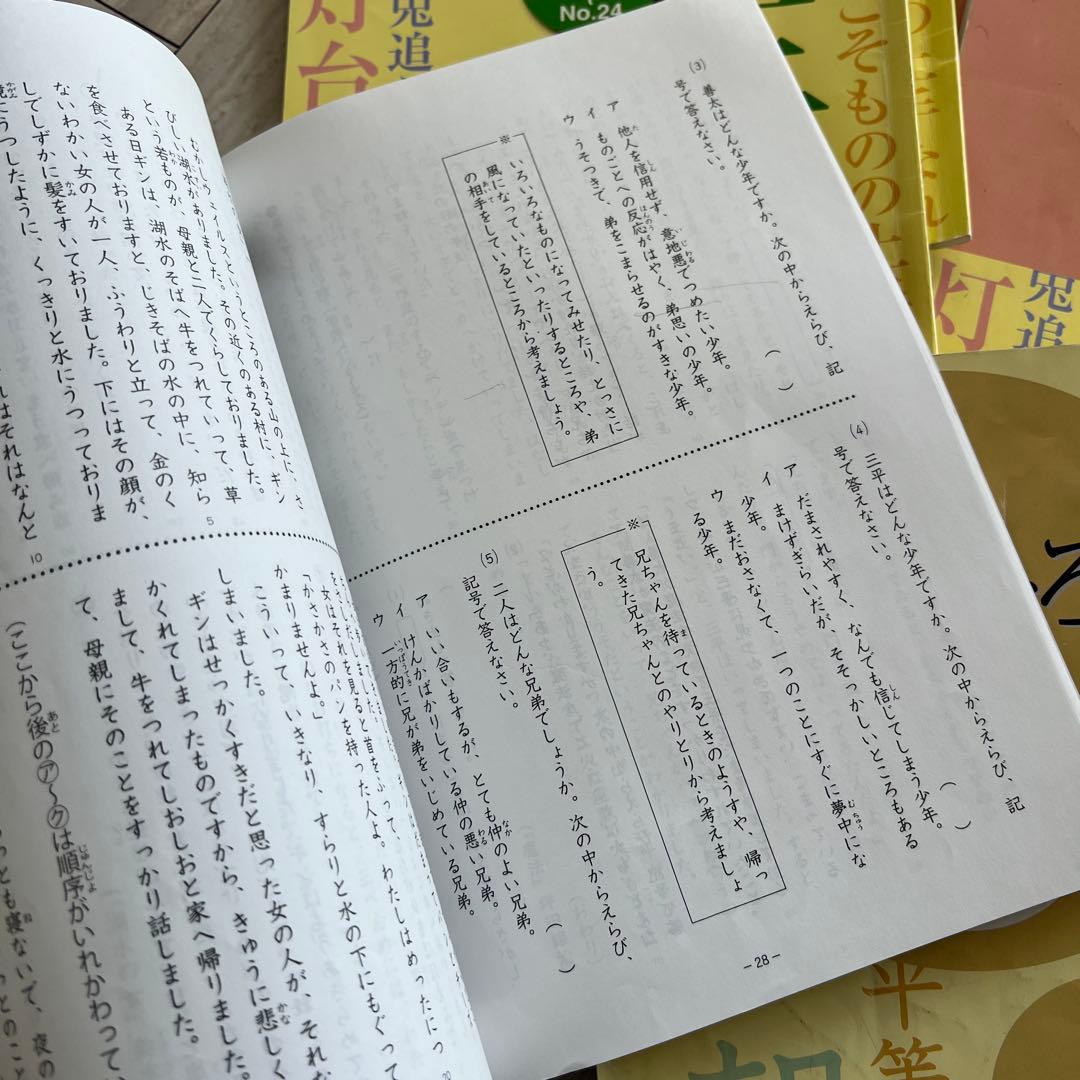 (3) 善太はどんな少年ですか。次の中からえらび、記
号で答えなさい。
(　　)
ア 他人を信用せず、意地悪でつめたい少年。
イ ものごとへの反応がはやく、弟思いの少年。
ウ うそつきで、弟をこまらせるのがすきな少年。
※ いろいろなものになってみせたり、とっさに
風になっていたといったりするところや、弟
の相手をしているところから考えましょう。
(4) 三平はどんな少年ですか。次の中からえらび、記
号で答えなさい。
(　　)
ア だまされやすく、なんでも信じてしまう少年。
イ まけずぎらいだが、そそっかしいところもある
少年。
ウ まだおさなくて、一つのことにすぐに夢中にな
る少年。
※ 兄ちゃんを待っているときのようすや、帰っ
てきた兄ちゃんとのやりとりから考えましょ
う。
(5) 二人はどんな兄弟でしょうか。次の中からえらび、
記号で答えなさい。
(　　)
ア いい合いもするが、とても仲のよい兄弟。
イ けんかばかりしている仲の悪い兄弟。
ウ 一方的に兄が弟をいじめている兄弟。
-28-
むかしウェイルスというところのある山の上に、さ
びしい湖水がありました。その近くのある村に、ギン
という若ものが、母親と二人でくらしておりました。
ある日ギンは、湖水のそばへ牛をつれていって、草
を食べさせておりますと、じきそばの水の中に、知ら
5
ないわかい女の人が一人、ふうわりと立って、金のく
しでしずかに髪をすいておりました。下にはその顔が、
鏡にうつしたように、くっきりと水にうつっておりま
それはそれはなんと
10
女はそれを見ると首をふって、
「かさかさのパンを持った人よ。わたしはめったにつ
かまりませんよ。」
こういって、いきなり、すらりと水の下にもぐって
しまいました。
20
ギンはせっかくすきだと思った女の人が、それな
かくれてしまったものですから、きゅうに悲しく
まして、牛をつれてしおしおと家へ帰りました。
て、母親にそのことをすっかり話しました。
(ここから後の㋐〜㋗は順序がいれかわってい
とも寝ないで、夜の
No.24
兎追
灯台
こそものの
兎追
灯
平等